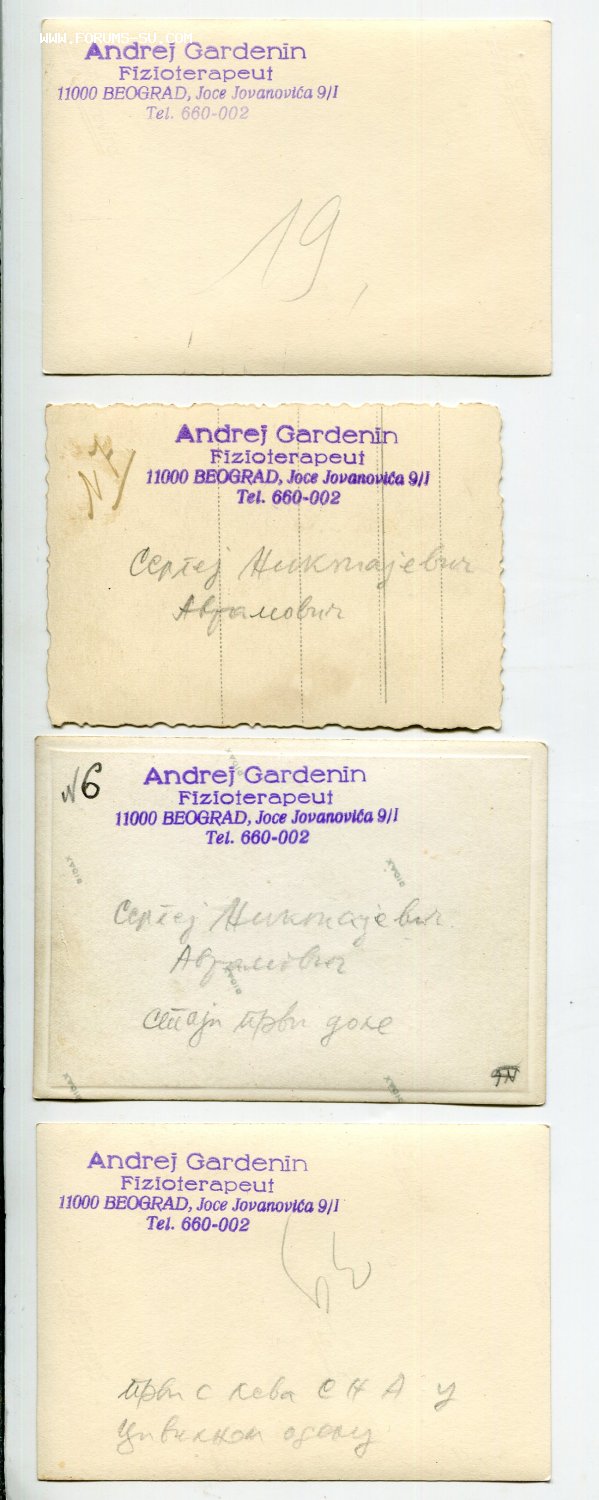 WWW.FORUMS-SU.COM
Andrej Gardenin
Fizioterapeut
11000 BEOGRAD, Joce Jovanovića 9/I
Tel. 660-002
19,
Andrej Gardenin
Fizioterapeut
11000 BEOGRAD, Joce Jovanovića 9/I
Tel. 660-002
Сергеј Николајевич
Аврамович
N6
Andrej Gardenin
Fizioterapeut
11000 BEOGRAD, Joce Jovanovića 9/I
Tel. 660-002
Сергеј Николајевич
Аврамович
стоји први доле
RIDAX
RIDAX
RIDAX
RIDAX
RIDAX
Andrej Gardenin
Fizioterapeut
11000 BEOGRAD, Joce Jovanovića 9/I
Tel. 660-002
први с лева С Н А у
цивилном оделу